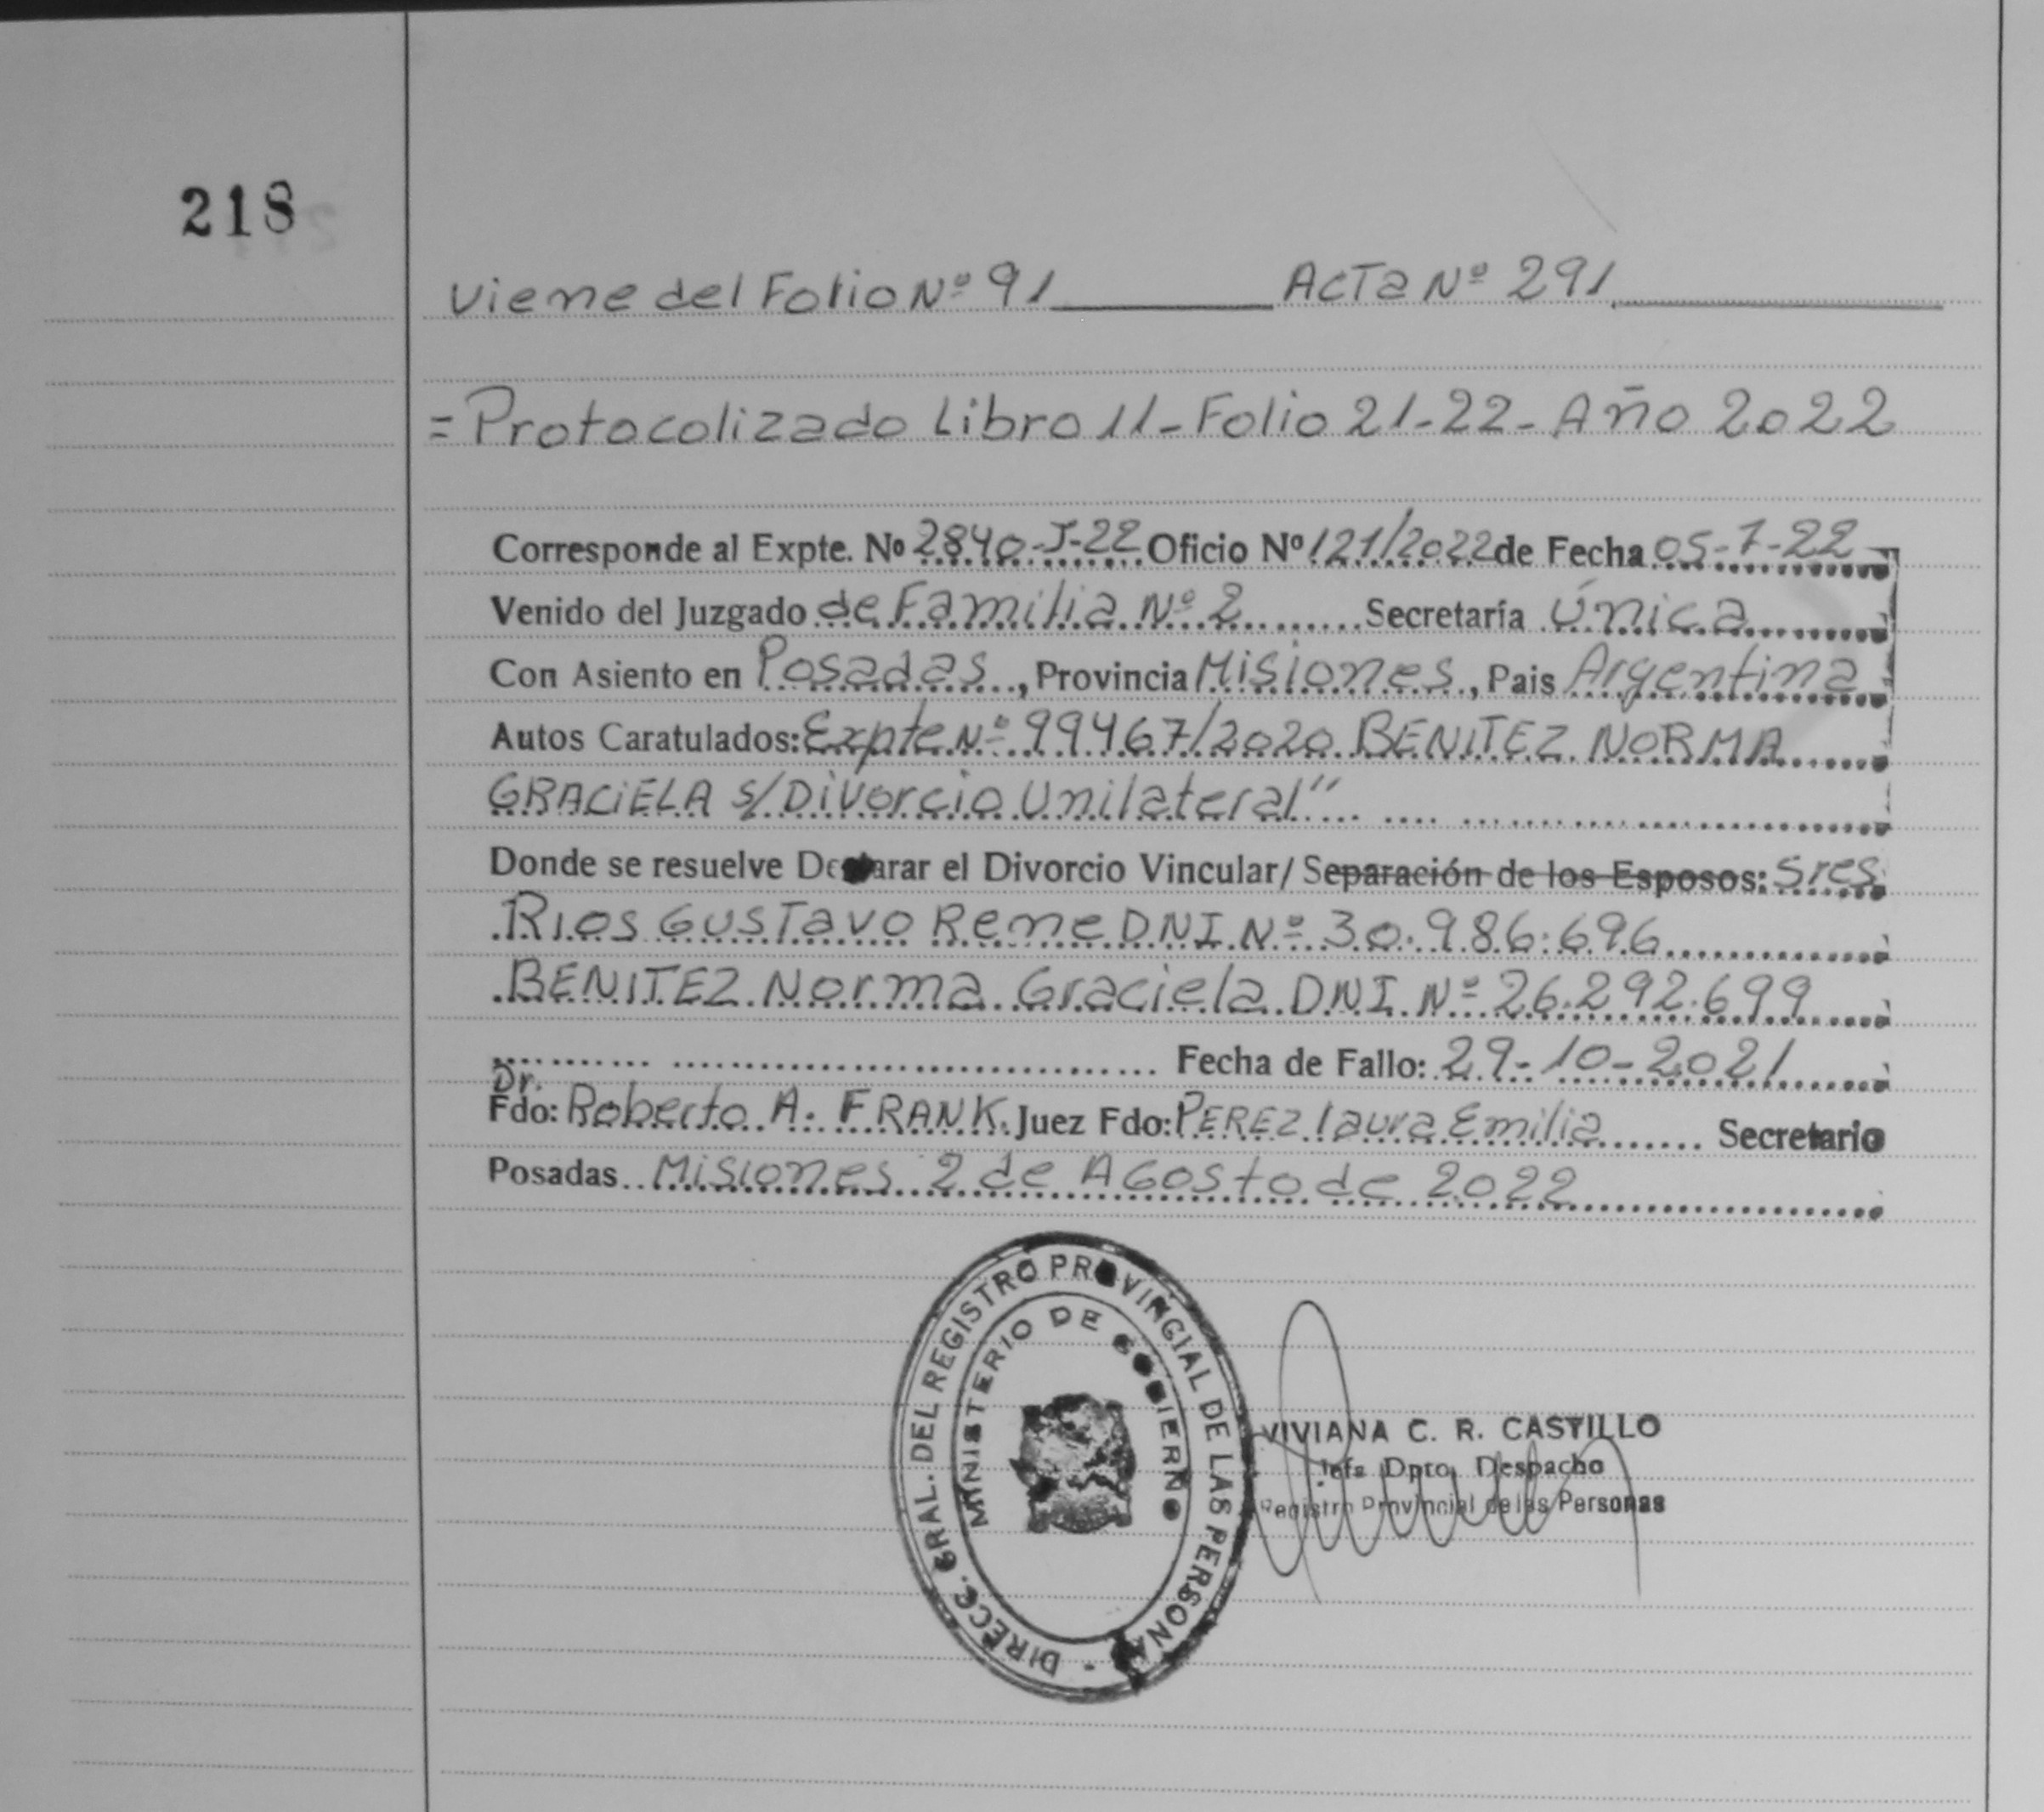 218
Viene del Folio Nº 91 ACTa Nº 291
= Protocolizado Libro 11 - Folio 21-22 - Año 2022
Corresponde al Expte. Nº 2840-J-22 Oficio Nº 121/2022 de Fecha 05-7-22
Venido del Juzgado de Familia Nº 2 Secretaría Única
Con Asiento en Posadas, Provincia Misiones, Pais Argentina
Autos Caratulados: Expte Nº 99467/2020 BENITEZ NORMA
GRACIELA s/Divorcio Unilateral"
Donde se resuelve Declarar el Divorcio Vincular/ Separación de los Esposos: Sres
RIOS GUSTavo Rene DNI Nº 30.986.696
BENITEZ Norma Graciela DNI Nº 26.292.699
Fecha de Fallo: 29-10-2021
Dr.
Fdo: Roberto A. FRANK. Juez Fdo: PEREZ laura Emilia Secretario
Posadas Misiones 2 de AGosto de 2022
DIRECC. GRAL. DEL REGISTRO PROVINCIAL DE LAS PERSONAS -
MINISTERIO DE GOBIERNO
VIVIANA C. R. CASTILLO
Jefa Dpto. Despacho
Registro Provincial de las Personas